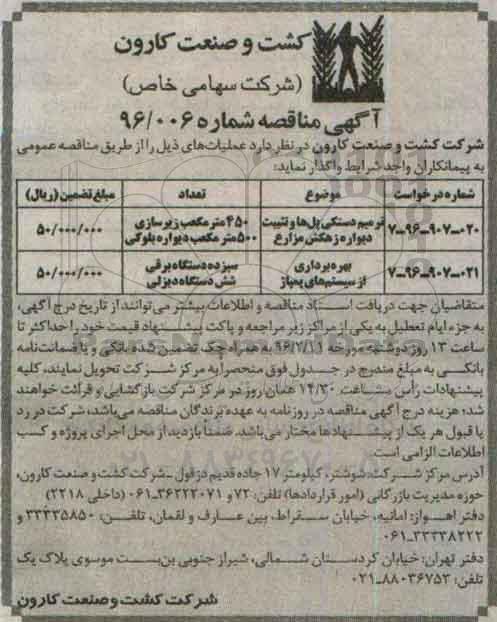 کشت و صنعت کارون
(شرکت سهامی خاص)
آگهی مناقصه شماره ۹۶/۰۰۶
شرکت کشت و صنعت کارون در نظر دارد عملیات‌های ذیل را از طریق مناقصه عمومی
به پیمانکاران واجد شرایط واگذار نماید:
شماره درخواست موضوع تعداد مبلغ تضمین (ریال)
۷-۹۶-۹۰۷-۰۲۰ ترمیم دستکی پل‌ها و تثبیت دیواره زهکش مزارع ۴۵۰ مترمکعب زیرسازی ۵۰۰ مترمکعب دیواره بلوکی ۵۰/۰۰۰/۰۰۰
۷-۹۶-۹۰۷-۰۲۱ بهره برداری از سیستم‌های پمپاژ سیزده دستگاه برقی شش دستگاه دیزلی ۵۰/۰۰۰/۰۰۰
متقاضیان جهت دریافت اسناد مناقصه و اطلاعات بیشتر می‌توانند از تاریخ درج آگهی،
به جز ایام تعطیل به یکی از مراکز زیر مراجعه و پاکت پیشنهاد قیمت خود را حداکثر تا
ساعت ۱۳ روز دوشنبه مورخه ۹۶/۲/۱۱ به همراه چک تضمین شده بانکی و یا ضمانت‌نامه
بانکی به مبلغ مندرج در جدول فوق منحصراً به مرکز شرکت تحویل نمایند، کلیه
پیشنهادات رأس ساعت ۱۴/۳۰ همان روز در مرکز شرکت بازگشایی و قرائت خواهند
شد؛ هزینه درج آگهی مناقصه در روزنامه به عهده برندگان مناقصه می‌باشد، شرکت در رد
یا قبول هر یک از پیشنهادها مختار می‌باشد. ضمناً بازدید از محل اجرای پروژه و کسب
اطلاعات الزامی است.
آدرس مرکز شرکت: شوشتر، کیلومتر ۱۷ جاده قدیم دزفول - شرکت کشت و صنعت کارون،
حوزه مدیریت بازرگانی (امور قراردادها) تلفن: ۷۲ و ۳۶۲۲۲۰۷۱-۰۶۱ (داخلی ۲۲۱۸)
دفتر اهواز: امانیه، خیابان سقراط، بین عارف و لقمان، تلفن: ۳۳۳۳۵۸۵۰ و
۳۳۳۳۸۲۲۲-۰۶۱
دفتر تهران: خیابان کردستان شمالی، شیراز جنوبی بن‌بست موسوی پلاک یک
تلفن: ۸۸۰۳۶۷۵۳-۰۲۱
شرکت کشت و صنعت کارون